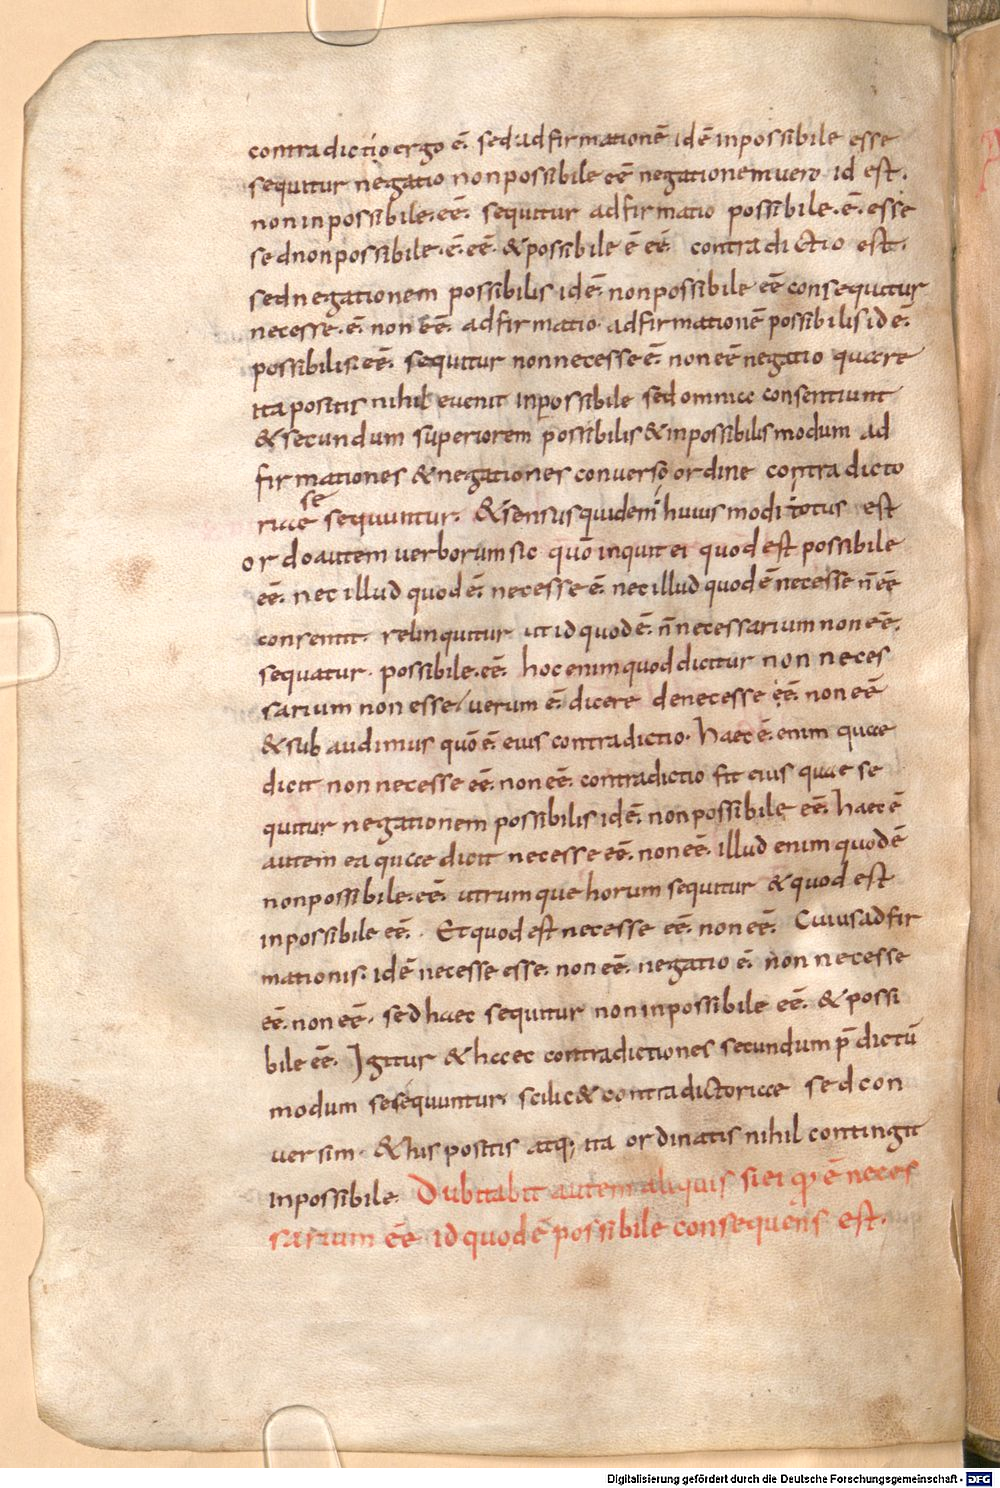 contradictio ergo ē. sed adfirmationē id ē inpossibile esse
sequitur negatio non possibile eē negationem uero id est.
non inpossibile. eē. sequitur adfirmatio possibile. ē. esse
sed non possibile. ē. eē. & possibile ē eē. contradictio est.
sed negationem possibilis id ē. non possibile eē consequitur
necesse. ē. non eē. adfirmatio. adfirmationē possibilis id ē.
possibilis. eē. sequitur non necesse ē. non eē negatio quare
ita positis nihil euenit inpossibile sed omnia consentiunt
& secundum superiorem possibilis & inpossibilis modum ad
firmationes & negationes converso ordine contradicto
riae se sequuntur. & sensus quidem huius modi totus est
ordo autem uerborum sic quō inquit ei quod est possibile
eē. nec illud quod ē. necesse ē. nec illud quod ē necesse n̄ eē
consentit. relinquitur ut id quod ē. n̄ necessarium non eē.
sequatur. possibile. eē. hoc enim quod dicitur non neces
sarium non esse uerum ē. dicere de necesse eē. non eē
& subaudimus quō ē. eius contradictio. haec ē. enim quae
dicit non necesse eē. non eē. contradictio fit eius quae se
quitur negationem possibilis id ē. non possibile eē. haec ē
autem ea quae dicit necesse eē. non eē. illud enim quod ē
non possibile. eē. utrumque horum sequitur & quod est
inpossibile eē. Et quod est necesse eē. non eē. Cuius adfir
mationis. id ē necesse esse. non eē. negatio ē. non necesse
eē. non eē. sed haec sequitur non inpossibile eē. & possi
bile eē. Igitur & haec contradictiones secundum p̄dictū
modum se sequuntur scilic& contradictoriae sed con
uersim. & his positis atq; ita ordinatis nihil contingit
inpossibile. Dubitabit autem aliquis si ei q̄ ē neces
sarium eē id quod ē possibile consequens est.
Digitalisierung gefördert durch die Deutsche Forschungsgemeinschaft - DFG